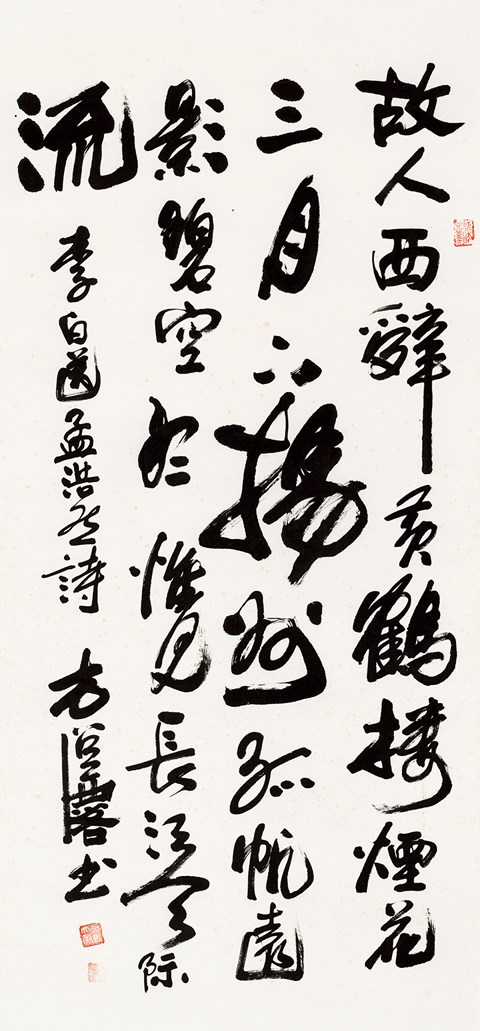 故人西辭黄鶴樓煙花
三月下揚州孤帆遠
影碧空尽惟見長江天際
流
李白送孟浩然詩 方書